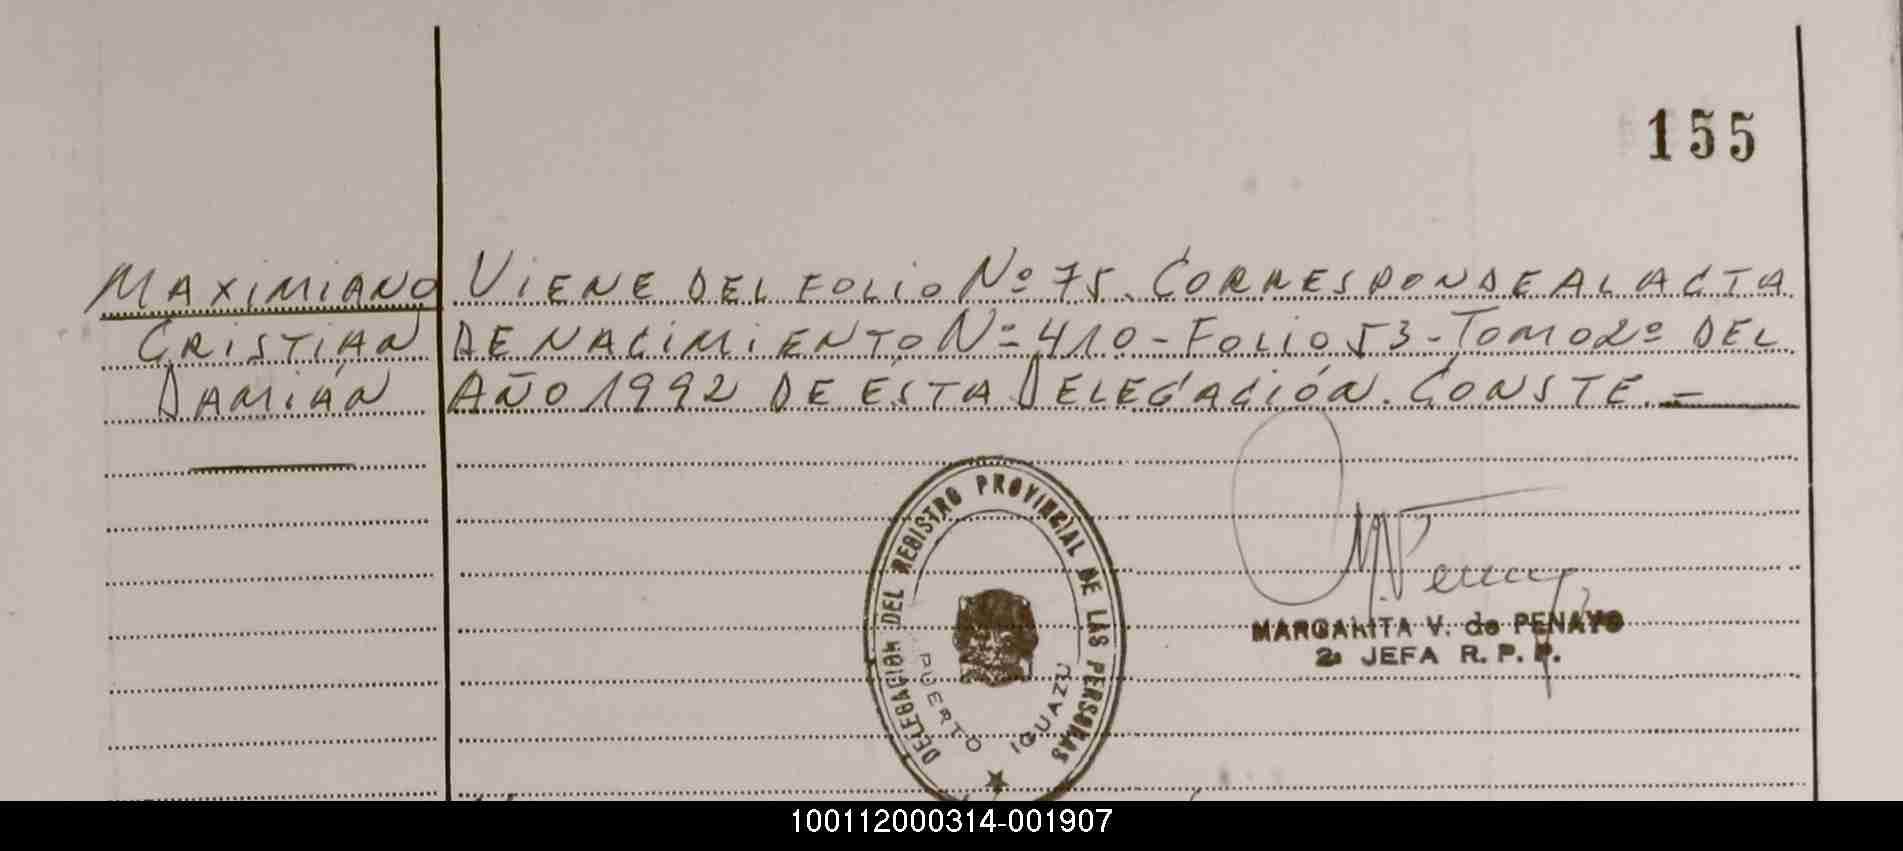 155
MAXIMIANO
CRISTIAN
DAMIÁN
VIENE DEL FOLIO Nº 75. CORRESPONDE AL ACTA
DE NACIMIENTO Nº 410 - FOLIO 53 - TOMO 2º DEL
AÑO 1992 DE ÉSTA DELEGACIÓN. CONSTE. -
DELEGACION DEL REGISTRO PROVINCIAL DE LAS PERSONAS
PUERTO IGUAZU
MARGARITA V. de PENAYO
2a JEFA R. P. P.
100112000314-001907